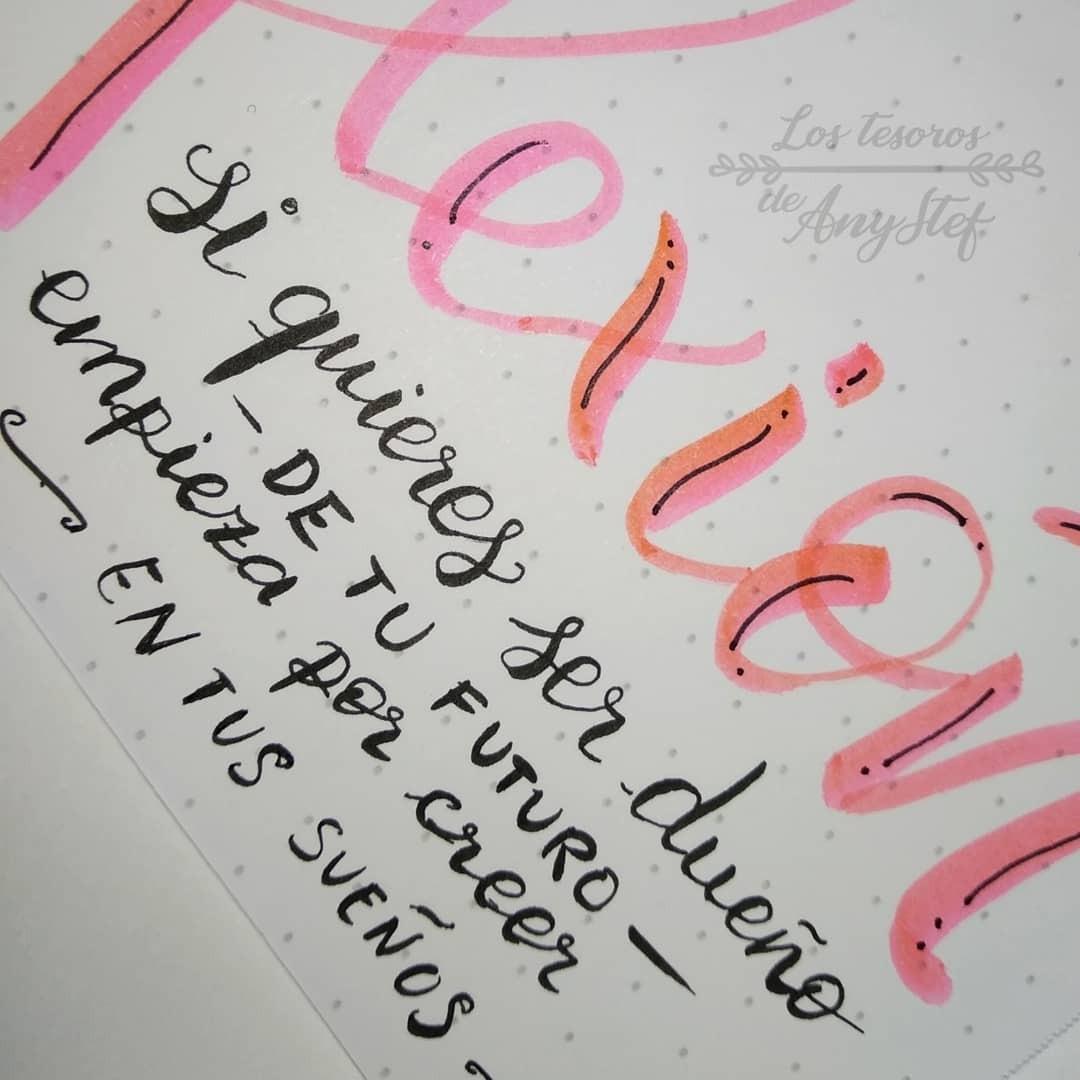 flexión
Los tesoros
de AnyStef
Si quieres ser dueño
- DE TU FUTURO -
empieza por creer
EN TUS SUEÑOS